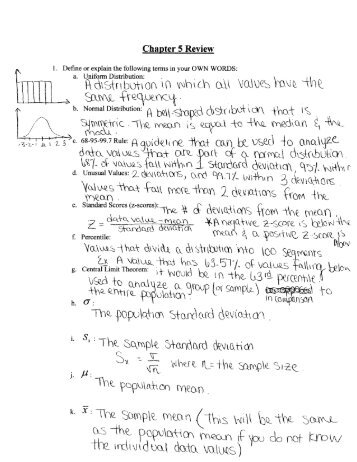 Chapter 5 Review
1. Define or explain the following terms in your OWN WORDS:
a. Uniform Distribution:
A distribution in which all values have the
same frequency.
b. Normal Distribution: A bell-shaped distribution that is
symmetric. The mean is equal to the median & the
mode.
-3 -2 -1 μ 1 2 3
c. 68-95-99.7 Rule: A guideline that can be used to analyze
data values that are part of a normal distribution
68% of values fall within 1 standard deviation, 95% within
d. Unusual Values: 2 deviations, and 99.7% within 3 deviations
Values that fall more than 2 deviations from the
mean.
e. Standard Scores (z-scores): The # of deviations from the mean.
z = data value - mean
standard deviation
*A negative z-score is below the
mean & a positive z-score is
Above
f. Percentile:
Values that divide a distribution into 100 segments
Ex A value that has 63.57% of values falling below
it would be in the 63rd percentile.
g. Central Limit Theorem:
used to analyze a group (or sample) to
the entire population in comparison
h. σ:
The population standard deviation.
i. Sx: The sample standard deviation
Sx = σ
√n
where n = the sample size
j. μ:
The population mean.
k. x̄: The sample mean (This will be the same
as the population mean if you do not know
the individual data values)